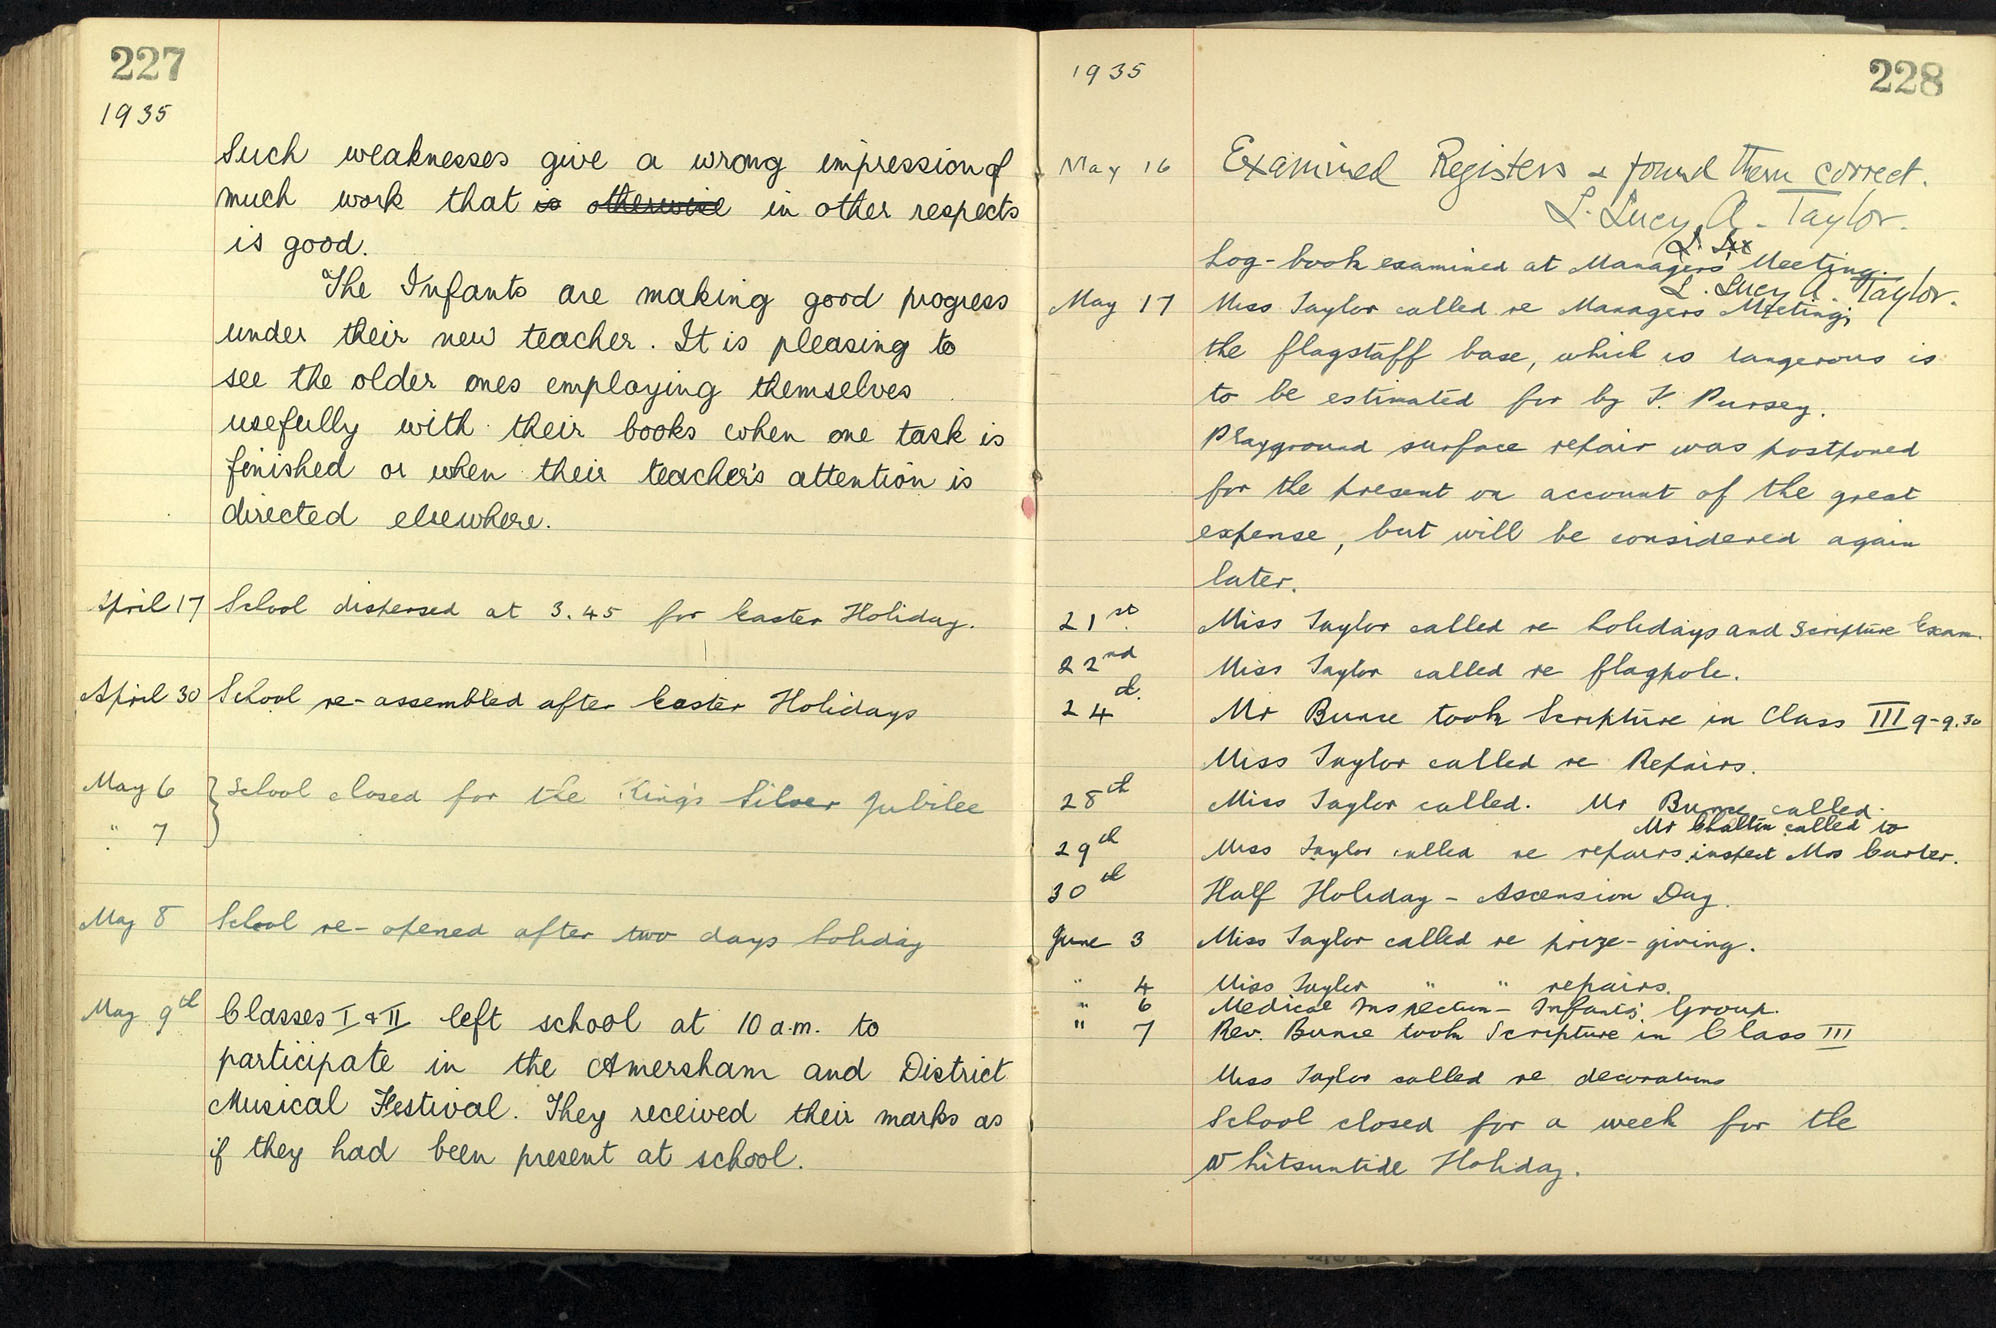 227
1935
Such weaknesses give a wrong impression of
much work that is otherwise in other respects
is good.
The Infants are making good progress
under their new teacher. It is pleasing to
see the older ones employing themselves
usefully with their books when one task is
finished or when their teacher's attention is
directed elsewhere.
April 17 School dispersed at 3.45 for Easter Holiday.
April 30 School re-assembled after Easter Holidays
May 6 } School closed for the King's Silver Jubilee
" 7
May 8 School re-opened after two days holiday
May 9th Classes I & II left school at 10 a.m. to
participate in the Amersham and District
Musical Festival. They received their marks as
if they had been present at school.
1935
228
May 16 Examined Registers & found them correct.
L. Lucy A. Taylor.
Log-book examined at Managers' Meeting.
L. Lucy A. Taylor.
May 17 Miss Taylor called re Managers Meeting;
the flagstaff base, which is dangerous is
to be estimated for by F. Pursey.
Playground surface repair was postponed
for the present on account of the great
expense, but will be considered again
later.
21st Miss Taylor called re holidays and Scripture Exam.
22nd Miss Taylor called re flagpole.
24th Mr Bunce took Scripture in Class III 9-9.30
Miss Taylor called re Repairs.
28th Miss Taylor called. Mr Bunce called.
Mr called to
29th Miss Taylor called re repairs. inspect Mrs Carter.
30th Half Holiday - Ascension Day.
June 3 Miss Taylor called re prize-giving.
" 4 Miss Taylor " " repairs.
" 6 Medical Inspection - Infants' Group.
" 7 Rev. Bunce took Scripture in Class III
Miss Taylor called re decorations
School closed for a week for the
Whitsuntide Holiday.